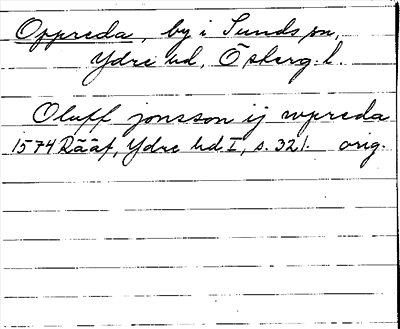 Oppreda, by i Sunds sn,
Ydre hd, Östergl. l.
Oluff jonsson ij wpreda
1574 Rääf, Ydre hd I, s. 321. orig.